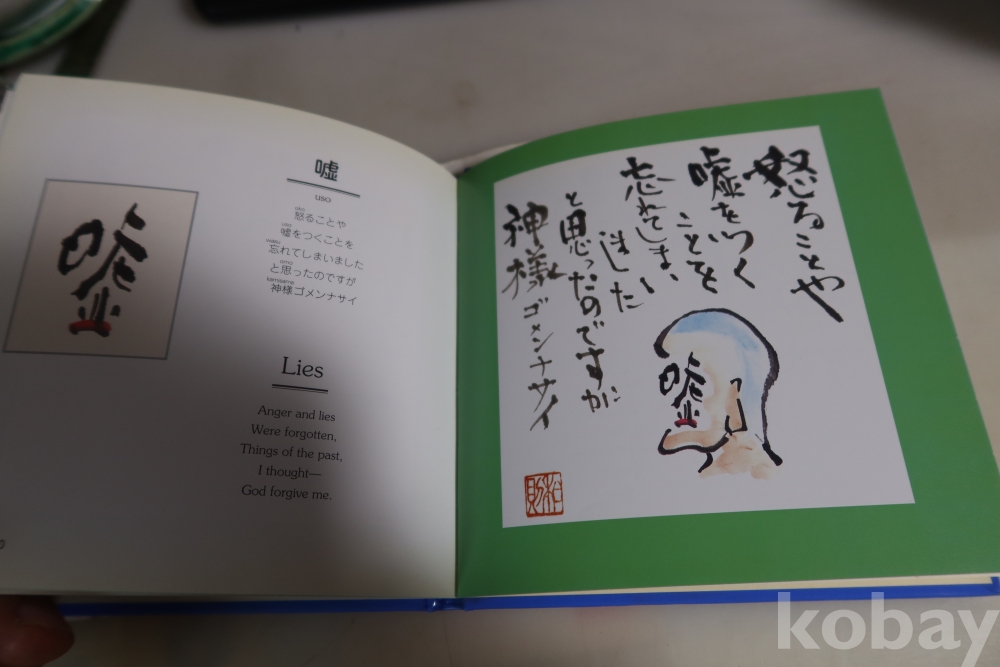 嘘
uso
怒ることや
嘘をつくことを
忘れてしまいました
と思ったのですが
神様ゴメンナサイ
Lies
Anger and lies
Were forgotten,
Things of the past,
I thought—
God forgive me.
嘘
怒ることや
嘘をつく
ことを
忘れてしまい
ました
と思ったのですが
神様ゴメンナサイ
嘘
kobay